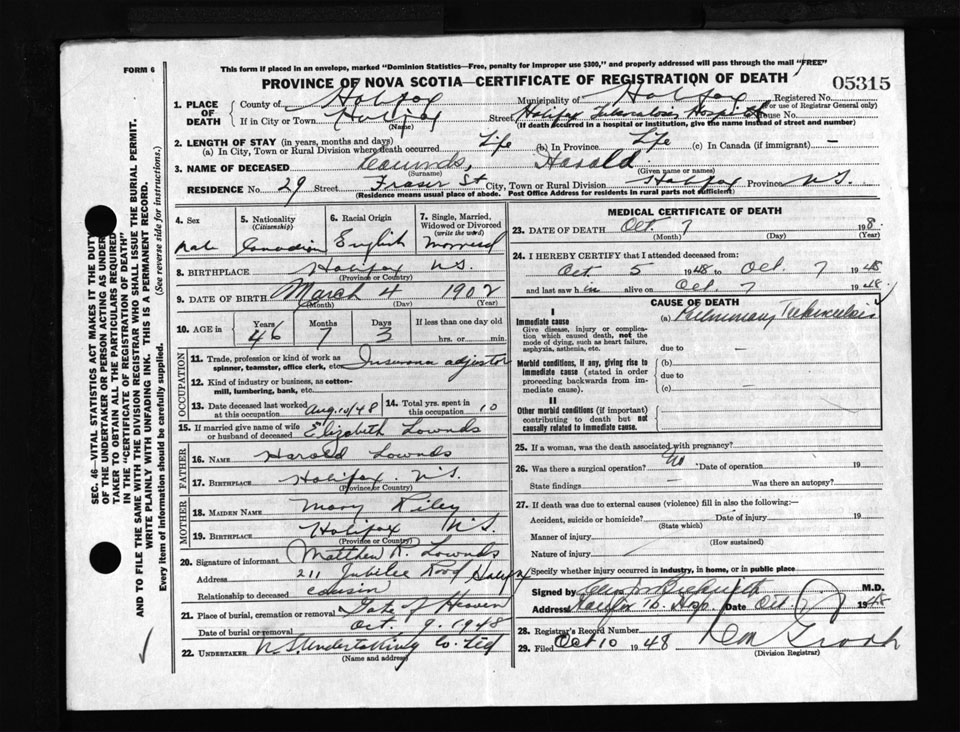 FORM 6
This form if placed in an envelope, marked "Dominion Statistics—Free, penalty for improper use $300," and properly addressed will pass through the mail "FREE"
PROVINCE OF NOVA SCOTIA—CERTIFICATE OF REGISTRATION OF DEATH
05315
1. PLACE OF DEATH
County of Halifax Municipality of Halifax Registered No.
(For use of Registrar General only)
If in City or Town Halifax Street Halifax Tuberculosis Hospital House No.
(Name) (If death occurred in a hospital or institution, give the name instead of street and number)
2. LENGTH OF STAY (in years, months and days)
(a) In City, Town or Rural Division where death occurred Life (b) In Province Life (c) In Canada (if immigrant) —
3. NAME OF DECEASED Lownds, Harold
(Surname) (Given name or names)
RESIDENCE No. 29 Street Fraser St City, Town or Rural Division Halifax Province N.S.
(Residence means usual place of abode. Post Office Address for residents in rural parts not sufficient)
4. Sex
Male
5. Nationality
(Citizenship)
Canadian
6. Racial Origin
English
7. Single, Married, Widowed or Divorced
(write the word)
Married
8. BIRTHPLACE Halifax N.S.
(Province or Country)
9. DATE OF BIRTH March 4 1902
(Month) (Day) (Year)
10. AGE in Years Months Days If less than one day old
46 7 3 hrs. or min.
OCCUPATION
11. Trade, profession or kind of work as spinner, teamster, office clerk, etc. Insurance adjustor
12. Kind of industry or business, as cotton-mill, lumbering, bank, etc.
13. Date deceased last worked at this occupation Aug. 10/48
14. Total yrs. spent in this occupation 10
15. If married give name of wife or husband of deceased Elizabeth Lownds
FATHER
16. NAME Harold Lownds
17. BIRTHPLACE Halifax N.S.
(Province or Country)
MOTHER
18. MAIDEN NAME Mary Riley
19. BIRTHPLACE Halifax N.S.
(Province or Country)
20. Signature of informant Matthew R. Lownds
Address 211 Jubilee Road Halifax
Relationship to deceased cousin
21. Place of burial, cremation or removal Gate of Heaven
Date of burial or removal Oct. 9. 1948
22. UNDERTAKER N.S. Undertaking Co. Ltd
(Name and address)
MEDICAL CERTIFICATE OF DEATH
23. DATE OF DEATH Oct. 7 19 8
(Month) (Day) (Year)
24. I HEREBY CERTIFY that I attended deceased from:
Oct 5 1948 to Oct. 7 1948
and last saw him alive on Oct. 7 1948.
CAUSE OF DEATH
I
Immediate cause
Give disease, injury or complication which caused death, not the mode of dying, such as heart failure, asphyxia, asthenia, etc.
(a) Pulmonary Tuberculosis
due to —
Morbid conditions, if any, giving rise to immediate cause (stated in order proceeding backwards from immediate cause).
(b)
due to
(c) —
II
Other morbid conditions (if important) contributing to death but not causally related to immediate cause.
25. If a woman, was the death associated with pregnancy?
26. Was there a surgical operation? No Date of operation 19
State findings — Was there an autopsy?
27. If death was due to external causes (violence) fill in also the following:—
Accident, suicide or homicide? Date of injury 19
(State which)
Manner of injury
(How sustained)
Nature of injury
Specify whether injury occurred in industry, in home, or in public place
Signed by M.D.
Address Halifax Tb. Hosp. Date Oct. 7 1948
28. Registrar's Record Number
29. Filed Oct 10 1948
(Division Registrar)
SEC. 46—VITAL STATISTICS ACT MAKES IT THE DUTY
OF THE UNDERTAKER OR PERSON ACTING AS UNDER
TAKER TO OBTAIN ALL THE PARTICULARS REQUIRED
IN THE "CERTIFICATE OF REGISTRATION OF DEATH"
AND TO FILE THE SAME WITH THE DIVISION REGISTRAR WHO SHALL ISSUE THE BURIAL PERMIT.
WRITE PLAINLY WITH UNFADING INK. THIS IS A PERMANENT RECORD.
Every item of information should be carefully supplied. (See reverse side for instructions.)